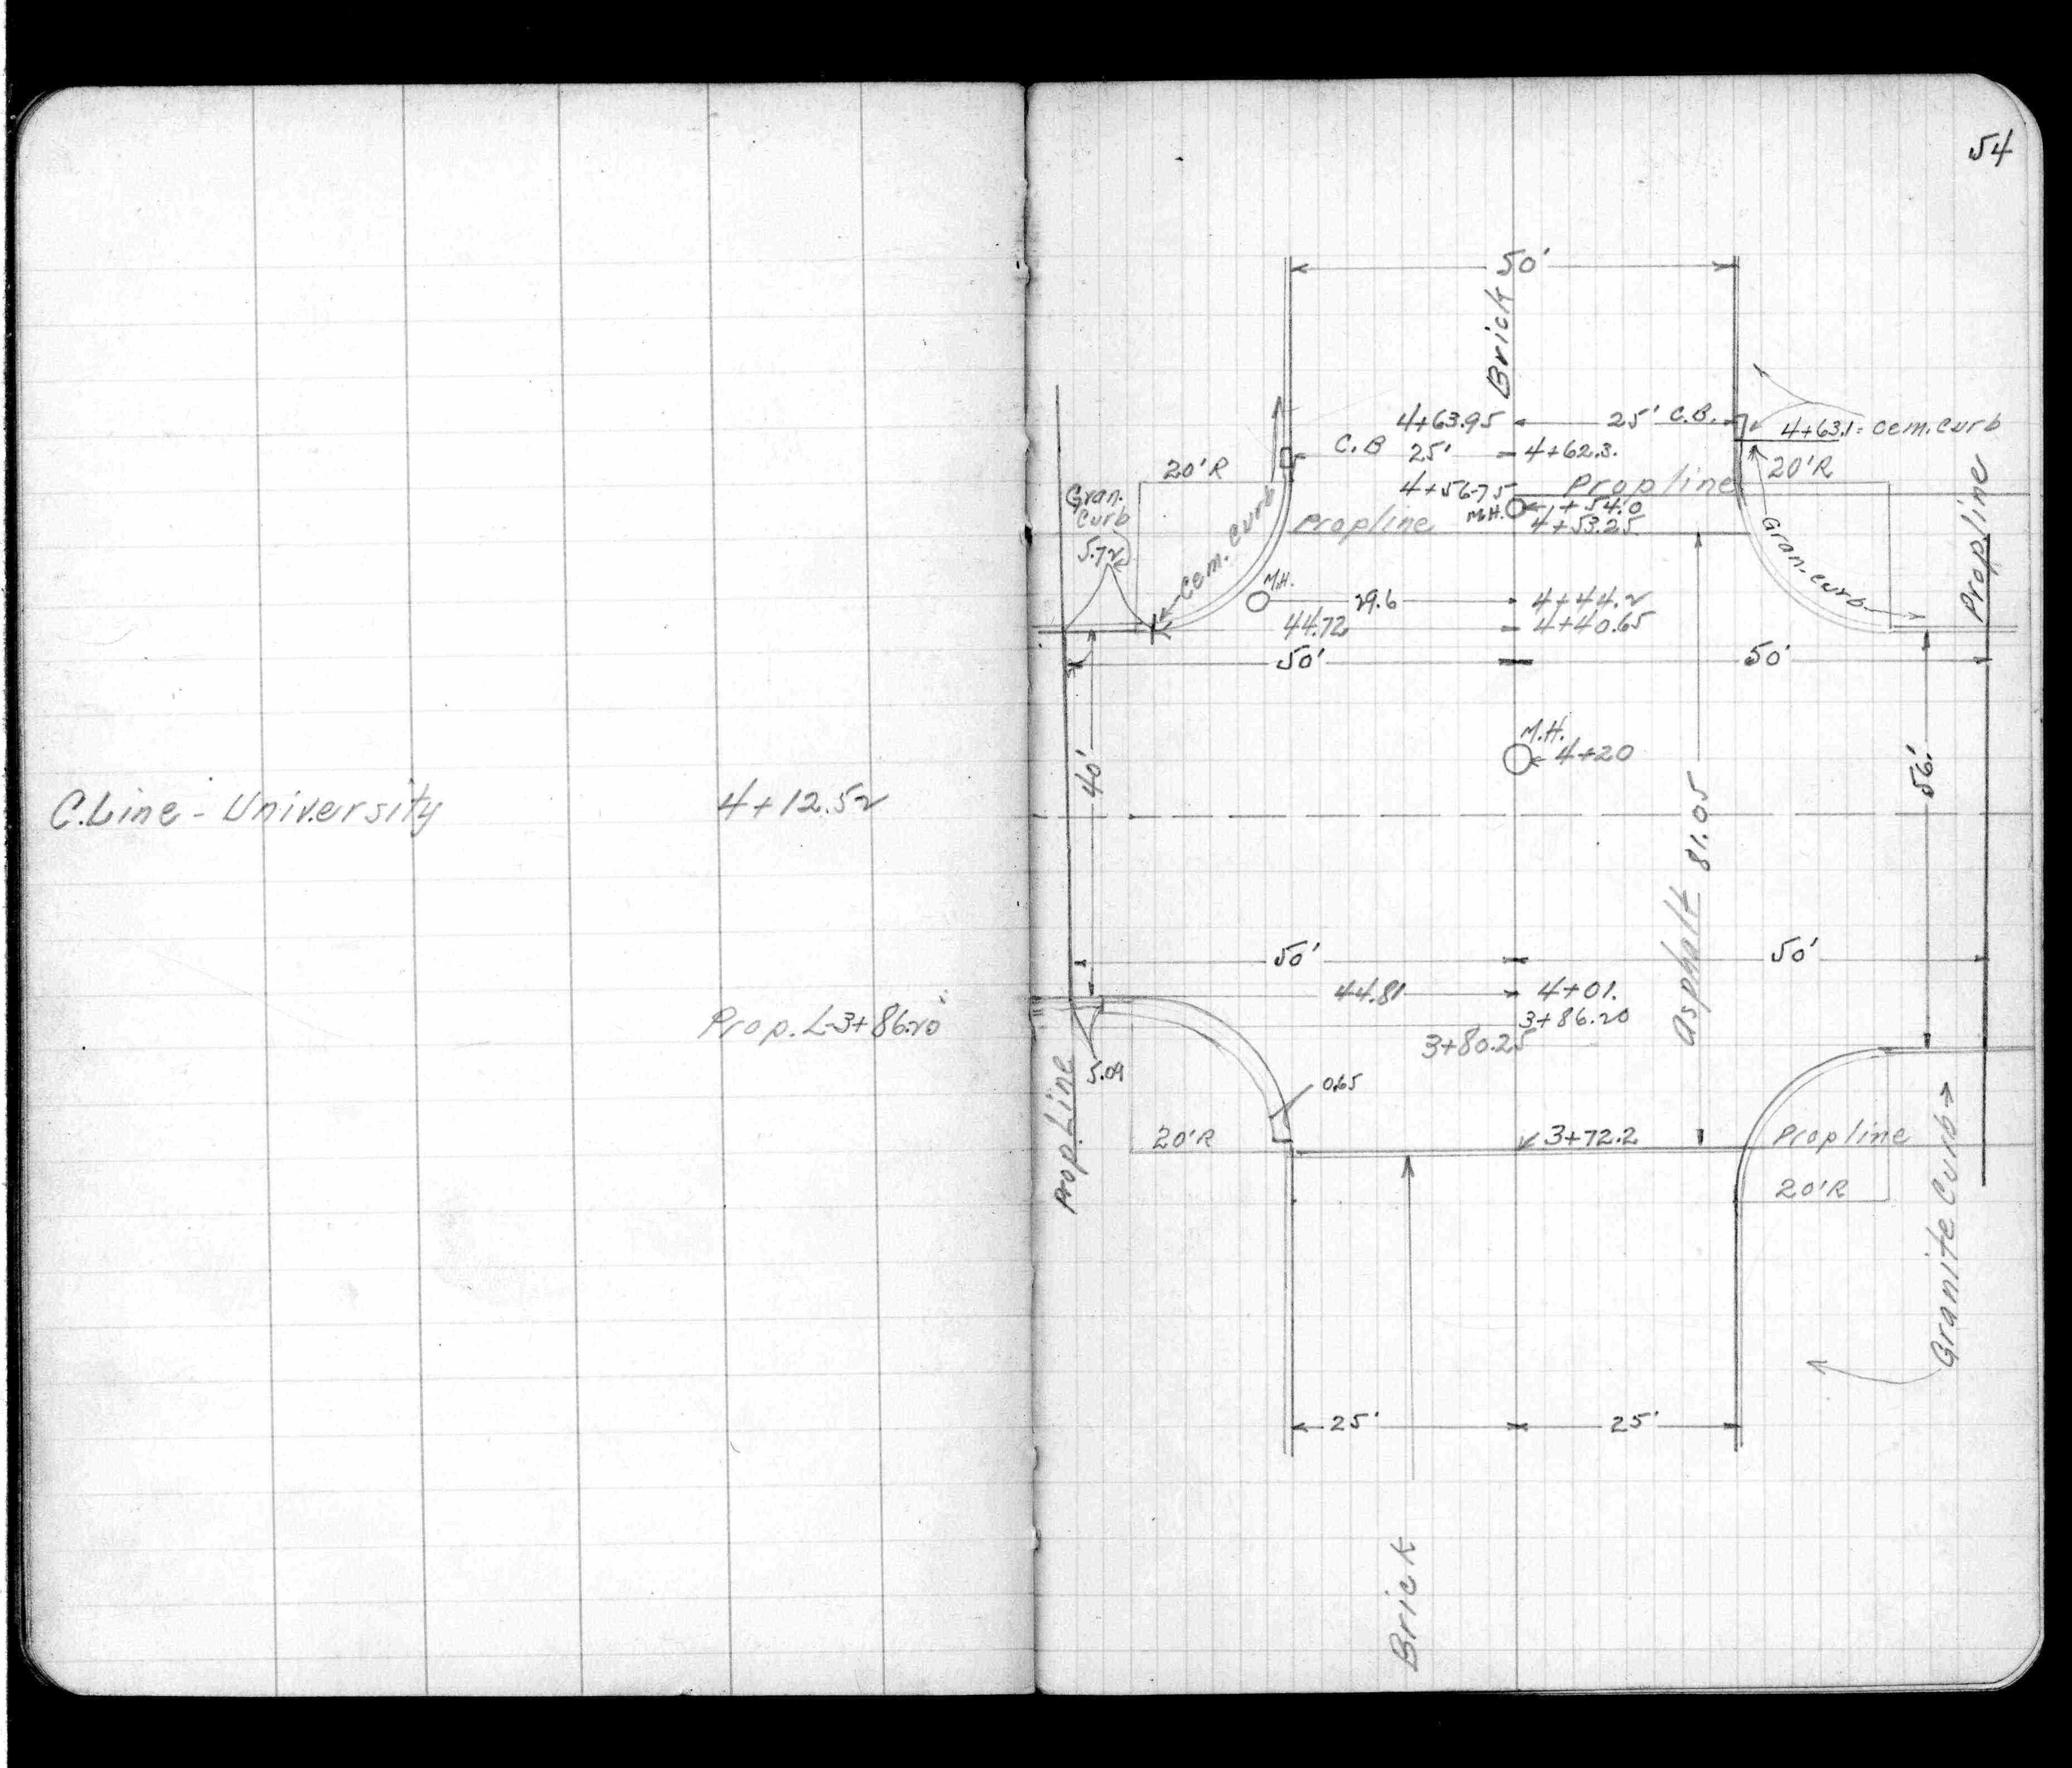 54
50'
Brick
4+63.95 25' C.B.
4+63.1 = cem. curb
C.B 25' 4+62.3.
20'R
20'R
Gran.
curb
5.72
4+56.75 Prop line
M.H. 4+54.0
Prop line 4+53.25
cem. curb
Gran. curb
Prop line
M.H.
29.6 4+44.2
44.72 4+40.65
50' 50'
M.H.
4+20
40'
56'
C.Line - University 4+12.52
Asphalt 81.05
50' 50'
44.81 4+01.
Prop. L-3+86.20
3+86.20
3+80.25
5.09
0.65
Prop. Line
20'R
3+72.2 Prop line
20'R
Granite Curb
25' 25'
Brick